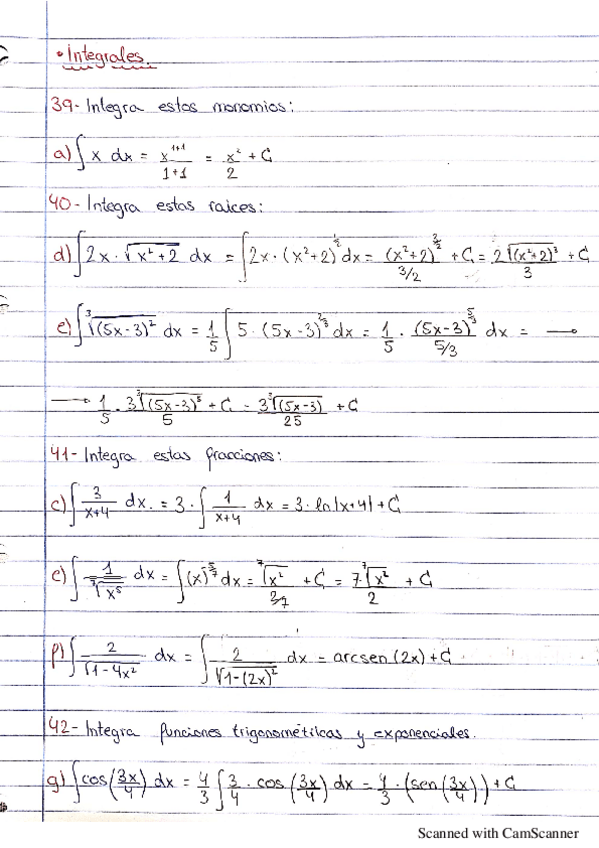 • Integrales.
39- Integra estos monomios:
a) ∫ x dx = x^(1+1)/(1+1) = x²/2 + C
40- Integra estas raices:
d) ∫ 2x · √(x²+2) dx = ∫ 2x · (x²+2)^(1/2) dx = (x²+2)^(3/2)/(3/2) + C = 2√((x²+2)³)/3 + C
e) ∫ ∛((5x-3)²) dx = 1/5 ∫ 5 · (5x-3)^(2/3) dx = 1/5 · (5x-3)^(5/3)/(5/3) dx = →
→ 1/5 · 3∛((5x-3)⁵)/5 + C = 3∛(5x-3)/25 + C
41- Integra estas fracciones:
c) ∫ 3/(x+4) dx. = 3 · ∫ 1/(x+4) dx = 3 · ln|x+4| + C
e) ∫ 1/⁷√(x⁵) dx = ∫ (x)^(-5/7) dx = ⁷√(x²)/(2/7) + C = 7·⁷√(x²)/2 + C
f) ∫ 2/√(1-4x²) dx = ∫ 2/√(1-(2x)²) dx = arcsen (2x) + C
42- Integra funciones trigonométricas y exponenciales.
g) ∫ cos(3x/4) dx = 4/3 ∫ 3/4 · cos(3x/4) dx = 4/3 · (sen(3x/4)) + C
Scanned with CamScanner